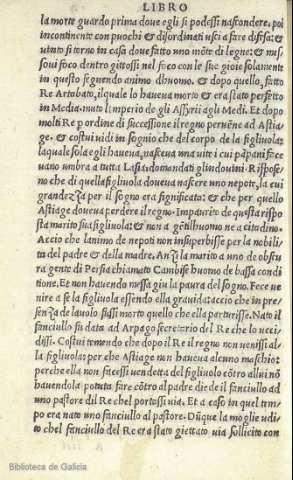 LIBRO
la morte guardo prima doue egli si podessi nascondere, poi
incontinente con puochi & disordinati usci a fare difesa: &
uinto si torno in casa doue fatto uno mõte di legne: & mes
soui foco dentro gittossi nel foco con le sue gioie solamente
in questo seguendo animo dhuomo. & dopo quello, fatto
Re Artabato, ilquale lo haueua morto & era stato perfetto
in Media. muto lĩmperio de gli Assyrii agli Medi. Et dopo
molti Re p ordine di successione il regno peruẽne ad Astia
ge. & costui uidi in sognio che del corpo de la figliuola:
laquale sola egli haueua, nasceua una uite i cui pãpani face
uano umbra a tutta Lasia domandati glindouini. Rispose
no che di quella figliuola doueua nascere uno nepote, la cui
grandezza per il segno era significato: & che per quello
Astiage doueua perdere il regno. Impaurito de questa rispo
sta marito sua figliuola: & non a gẽtilhuomo ne a cittadino.
Accio che lanimo de nepoti non insuperbisse per la nobili
ta del padre & della madre. Anzi la marito a uno de obscu
ra gente di Persia chiamato Cambise huomo de bassa condi
tione. Et non hauendo messa giu la paura del sogno. Fece ue
nire a se la figliuola essendo ella grauida: accio che in pre
senza de lauolo fussi morto quello che la parturisse. Nato il
fanciullo fu data ad Arpago secretario del Re che lo ucci
dissi. Costui temendo che dopo il Re il regno non uenissi al
la figliuola: per che Astiage non haueua alcuno maschio:
perche ella non facessi uendetta del figliuolo cõtro allui nõ
hauendola potuta fare cõtro al padre die de il fanciullo ad
uno pastore dil Re chel portossi uia. Et a caso in quel tem
po era nato uno fanciullo al pastore. Dũque la moglie udi
to chel fanciullo del Re era stato giettato uia sollicito con
Biblioteca de Galicia